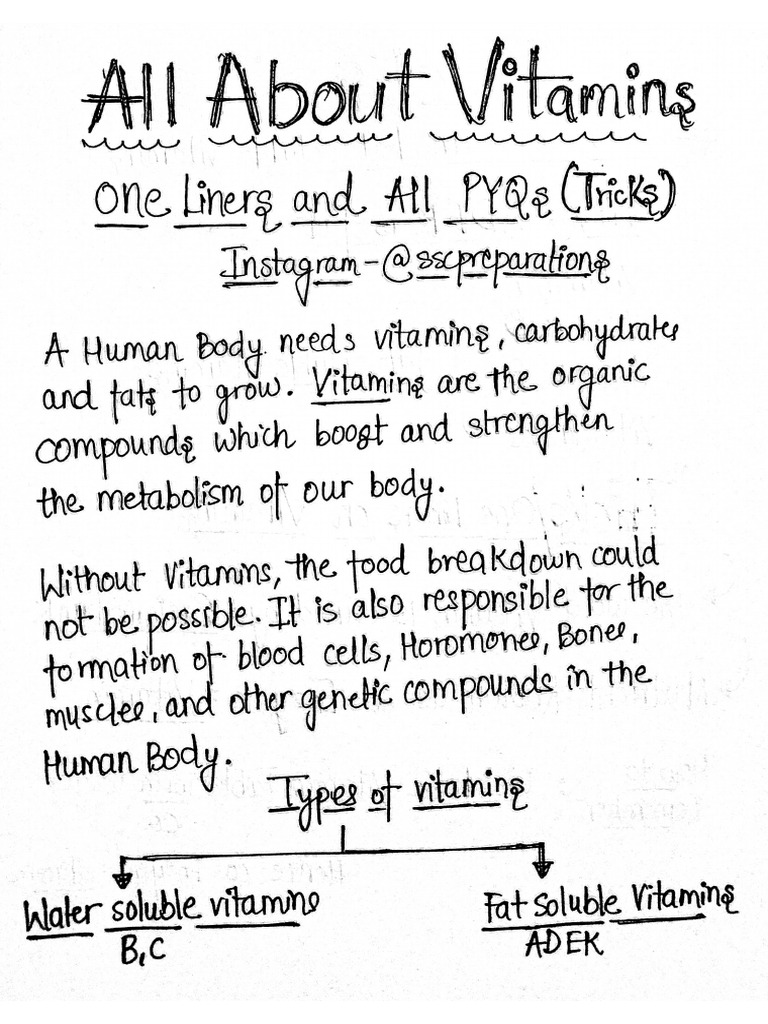 All About Vitamins
One Liners and All PYQs (Tricks)
Instagram-@sscpreparations
A Human Body needs vitamins, carbohydrates
and fats to grow. Vitamins are the organic
compounds which boost and strengthen
the metabolism of our body.
Without Vitamins, the food breakdown could
not be possible. It is also responsible for the
formation of blood cells, Horomones, Bones,
muscles, and other genetic compounds in the
Human Body.
Types of vitamins
Water soluble vitamins
B,C
Fat Soluble Vitamins
ADEK